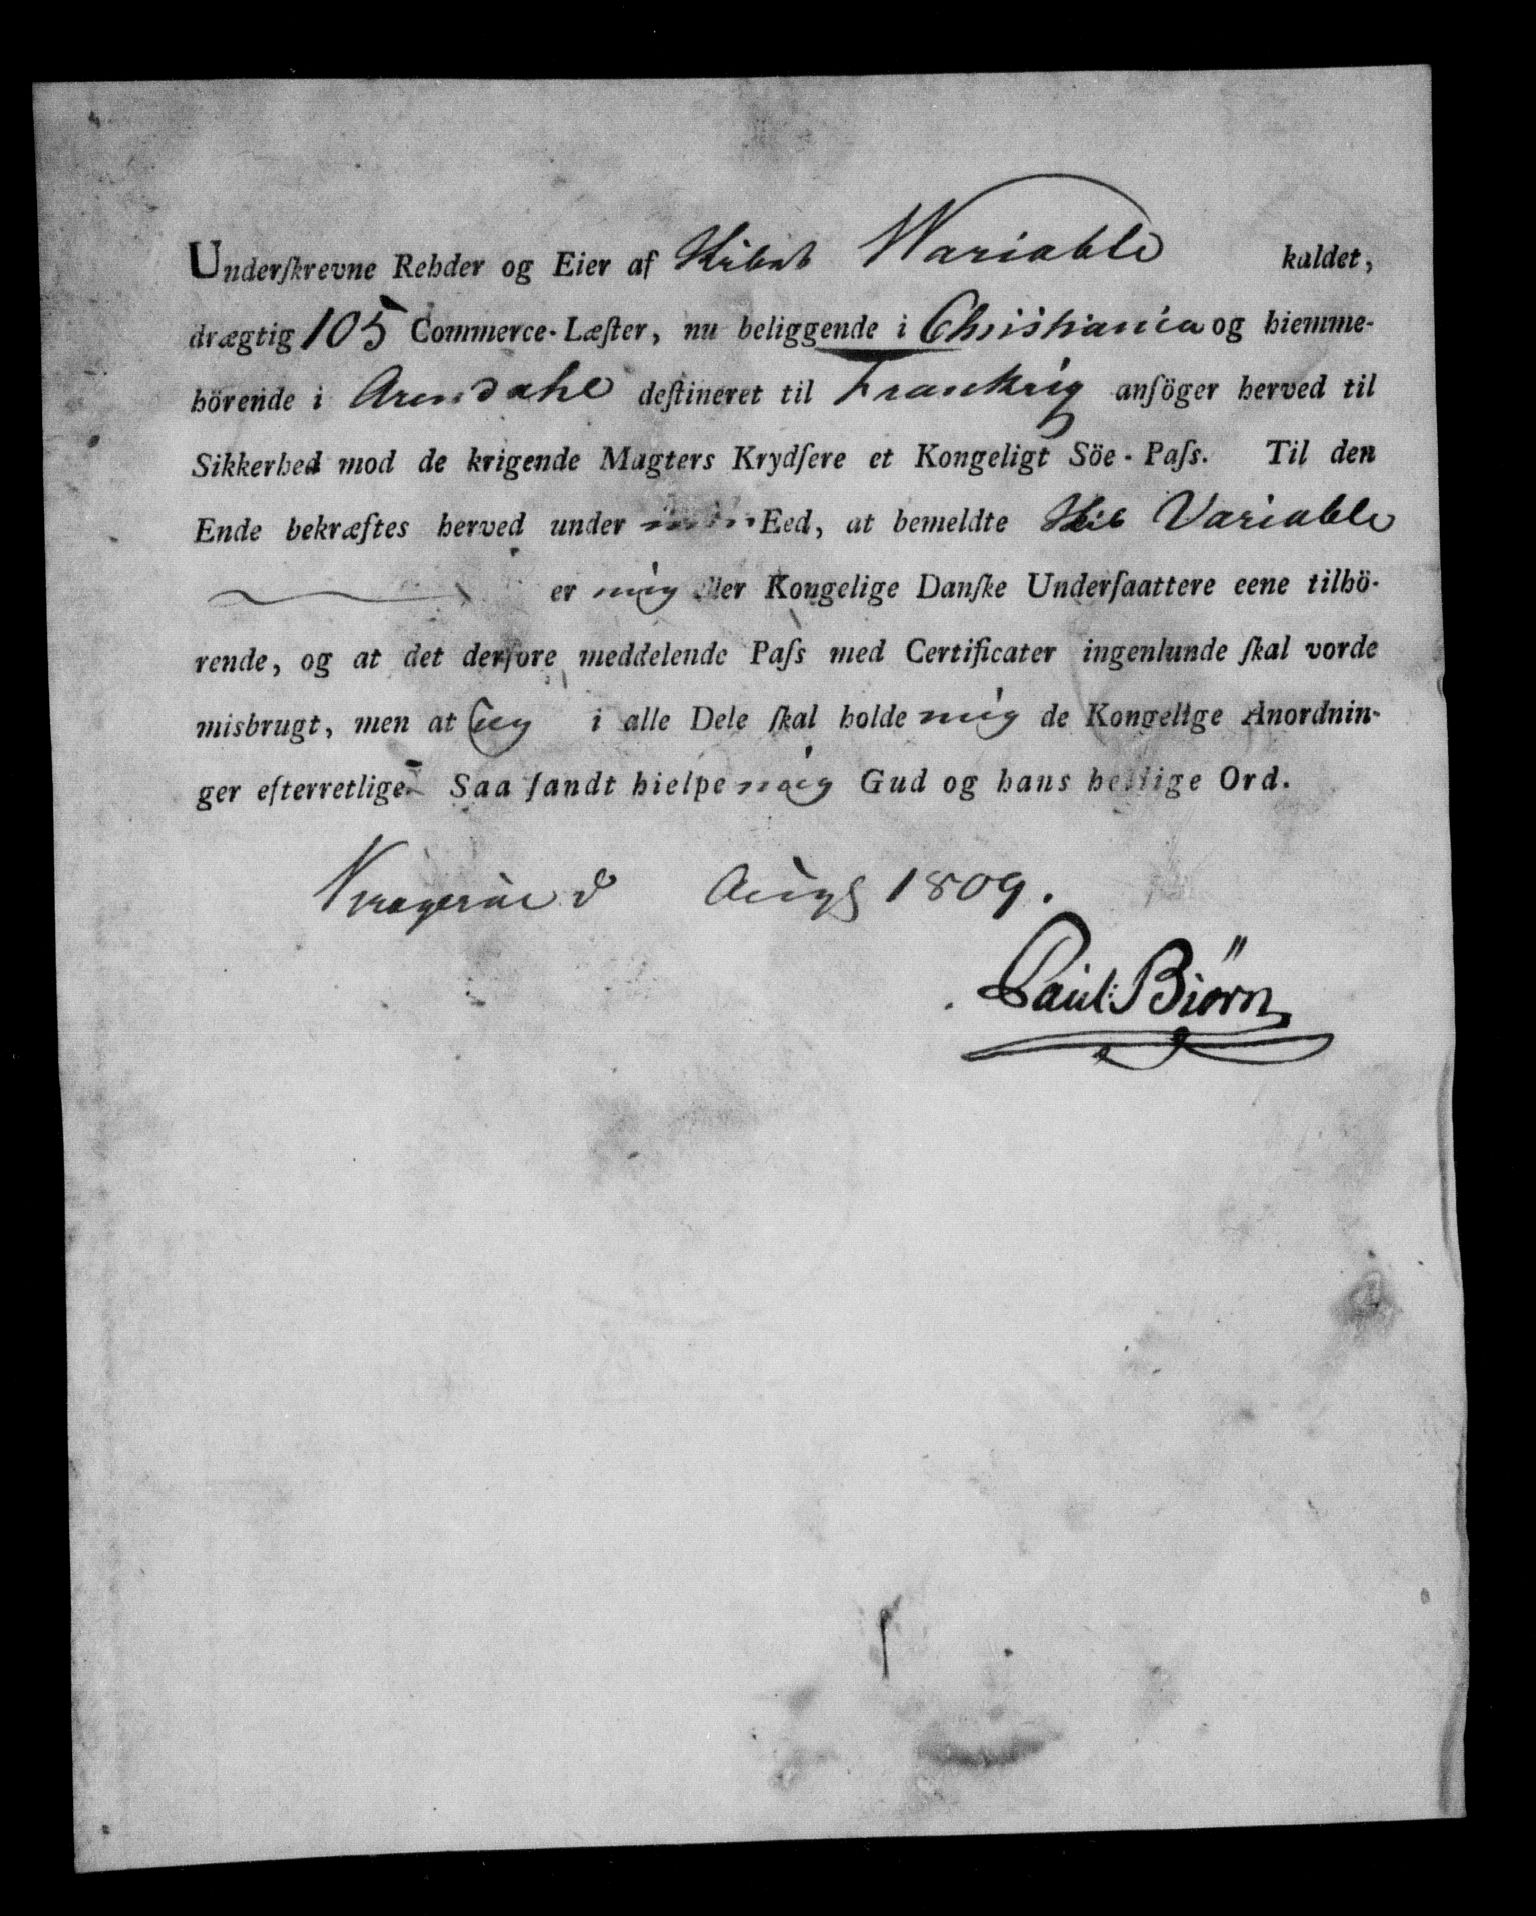 Underſkrevne Rehder og Eier af Skibet Wariable kaldet,
drægtig 105 Commerce-Læſter, nu beliggende i Christiania og hiemme-
hörende i Arendahl deſtineret til Frankrig anſöger herved til
Sikkerhed mod de krigende Magters Krydſere et Kongeligt Söe-Paſs. Til den
Ende bekræftes herved under Eed, at bemeldte Skib Variable
er mig eller Kongelige Danſke Underſaattere eene tilhö-
rende, og at det derfore meddelende Paſs med Certificater ingenlunde ſkal vorde
misbrugt, men at jeg i alle Dele ſkal holde mig de Kongelige Anordnin-
ger efterretlige. Saa ſandt hielpe mig Gud og hans hellige Ord.
Kragerøe d Aug 1809.
Paul: Biørn